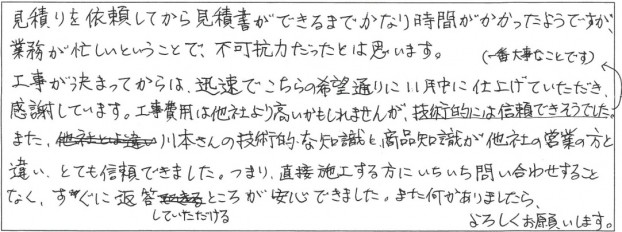 見積りを依頼してから見積書ができるまでかなり時間がかかったようですが、
業務が忙しいということで、不可抗力だったとは思います。
(一番大事なことです)
工事が決まってからは、迅速でこちらの希望通りに11月中に仕上げていただき、
感謝しています。工事費用は他社より高いかもしれませんが、技術的には信頼できそうでした。
また、他社とは違い川本さんの技術的な知識と、商品知識が他社の営業の方と
違い、とても信頼できました。つまり、直接施工する方にいちいち問い合わせすること
なく、すぐに返答できるところが安心できました。また何かありましたら、
していただける
よろしくお願いします。